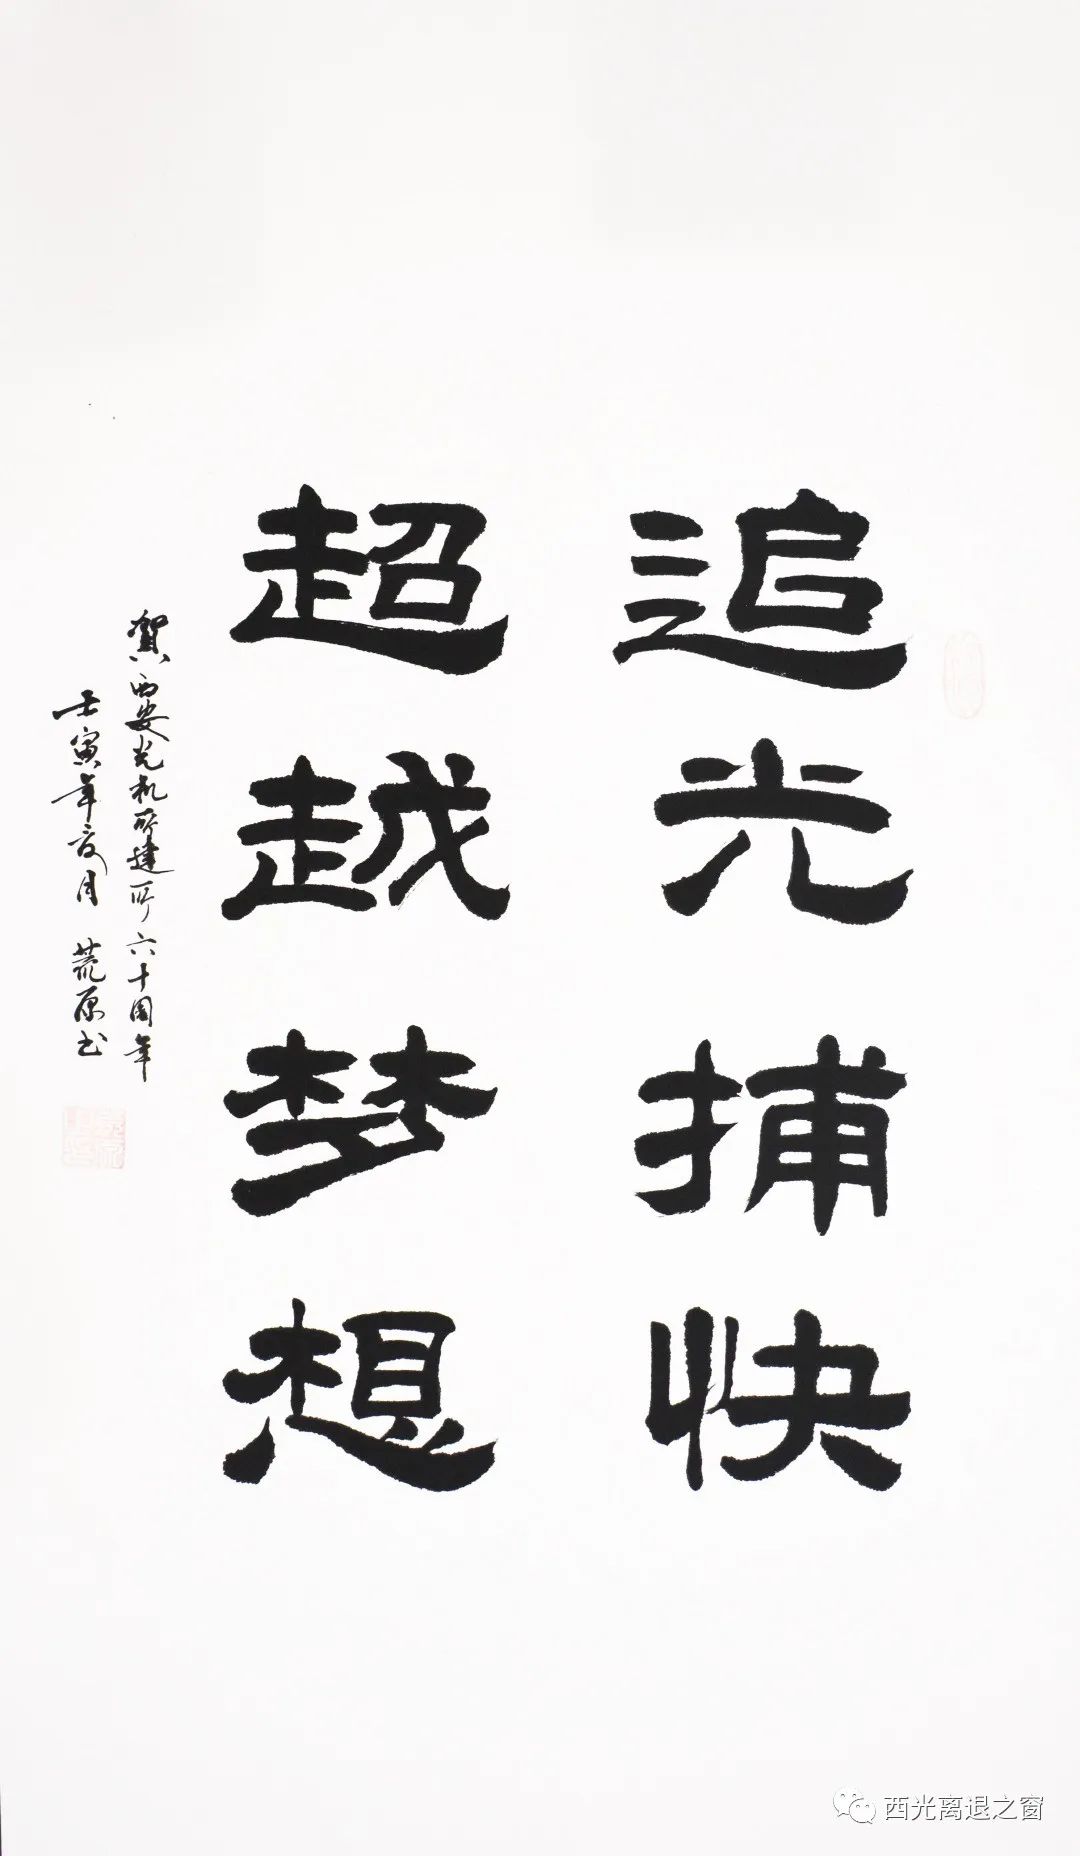 追光捕快
超越梦想
贺西安光机所建所六十周年
壬寅年夏月 荒原书
西光离退之窗